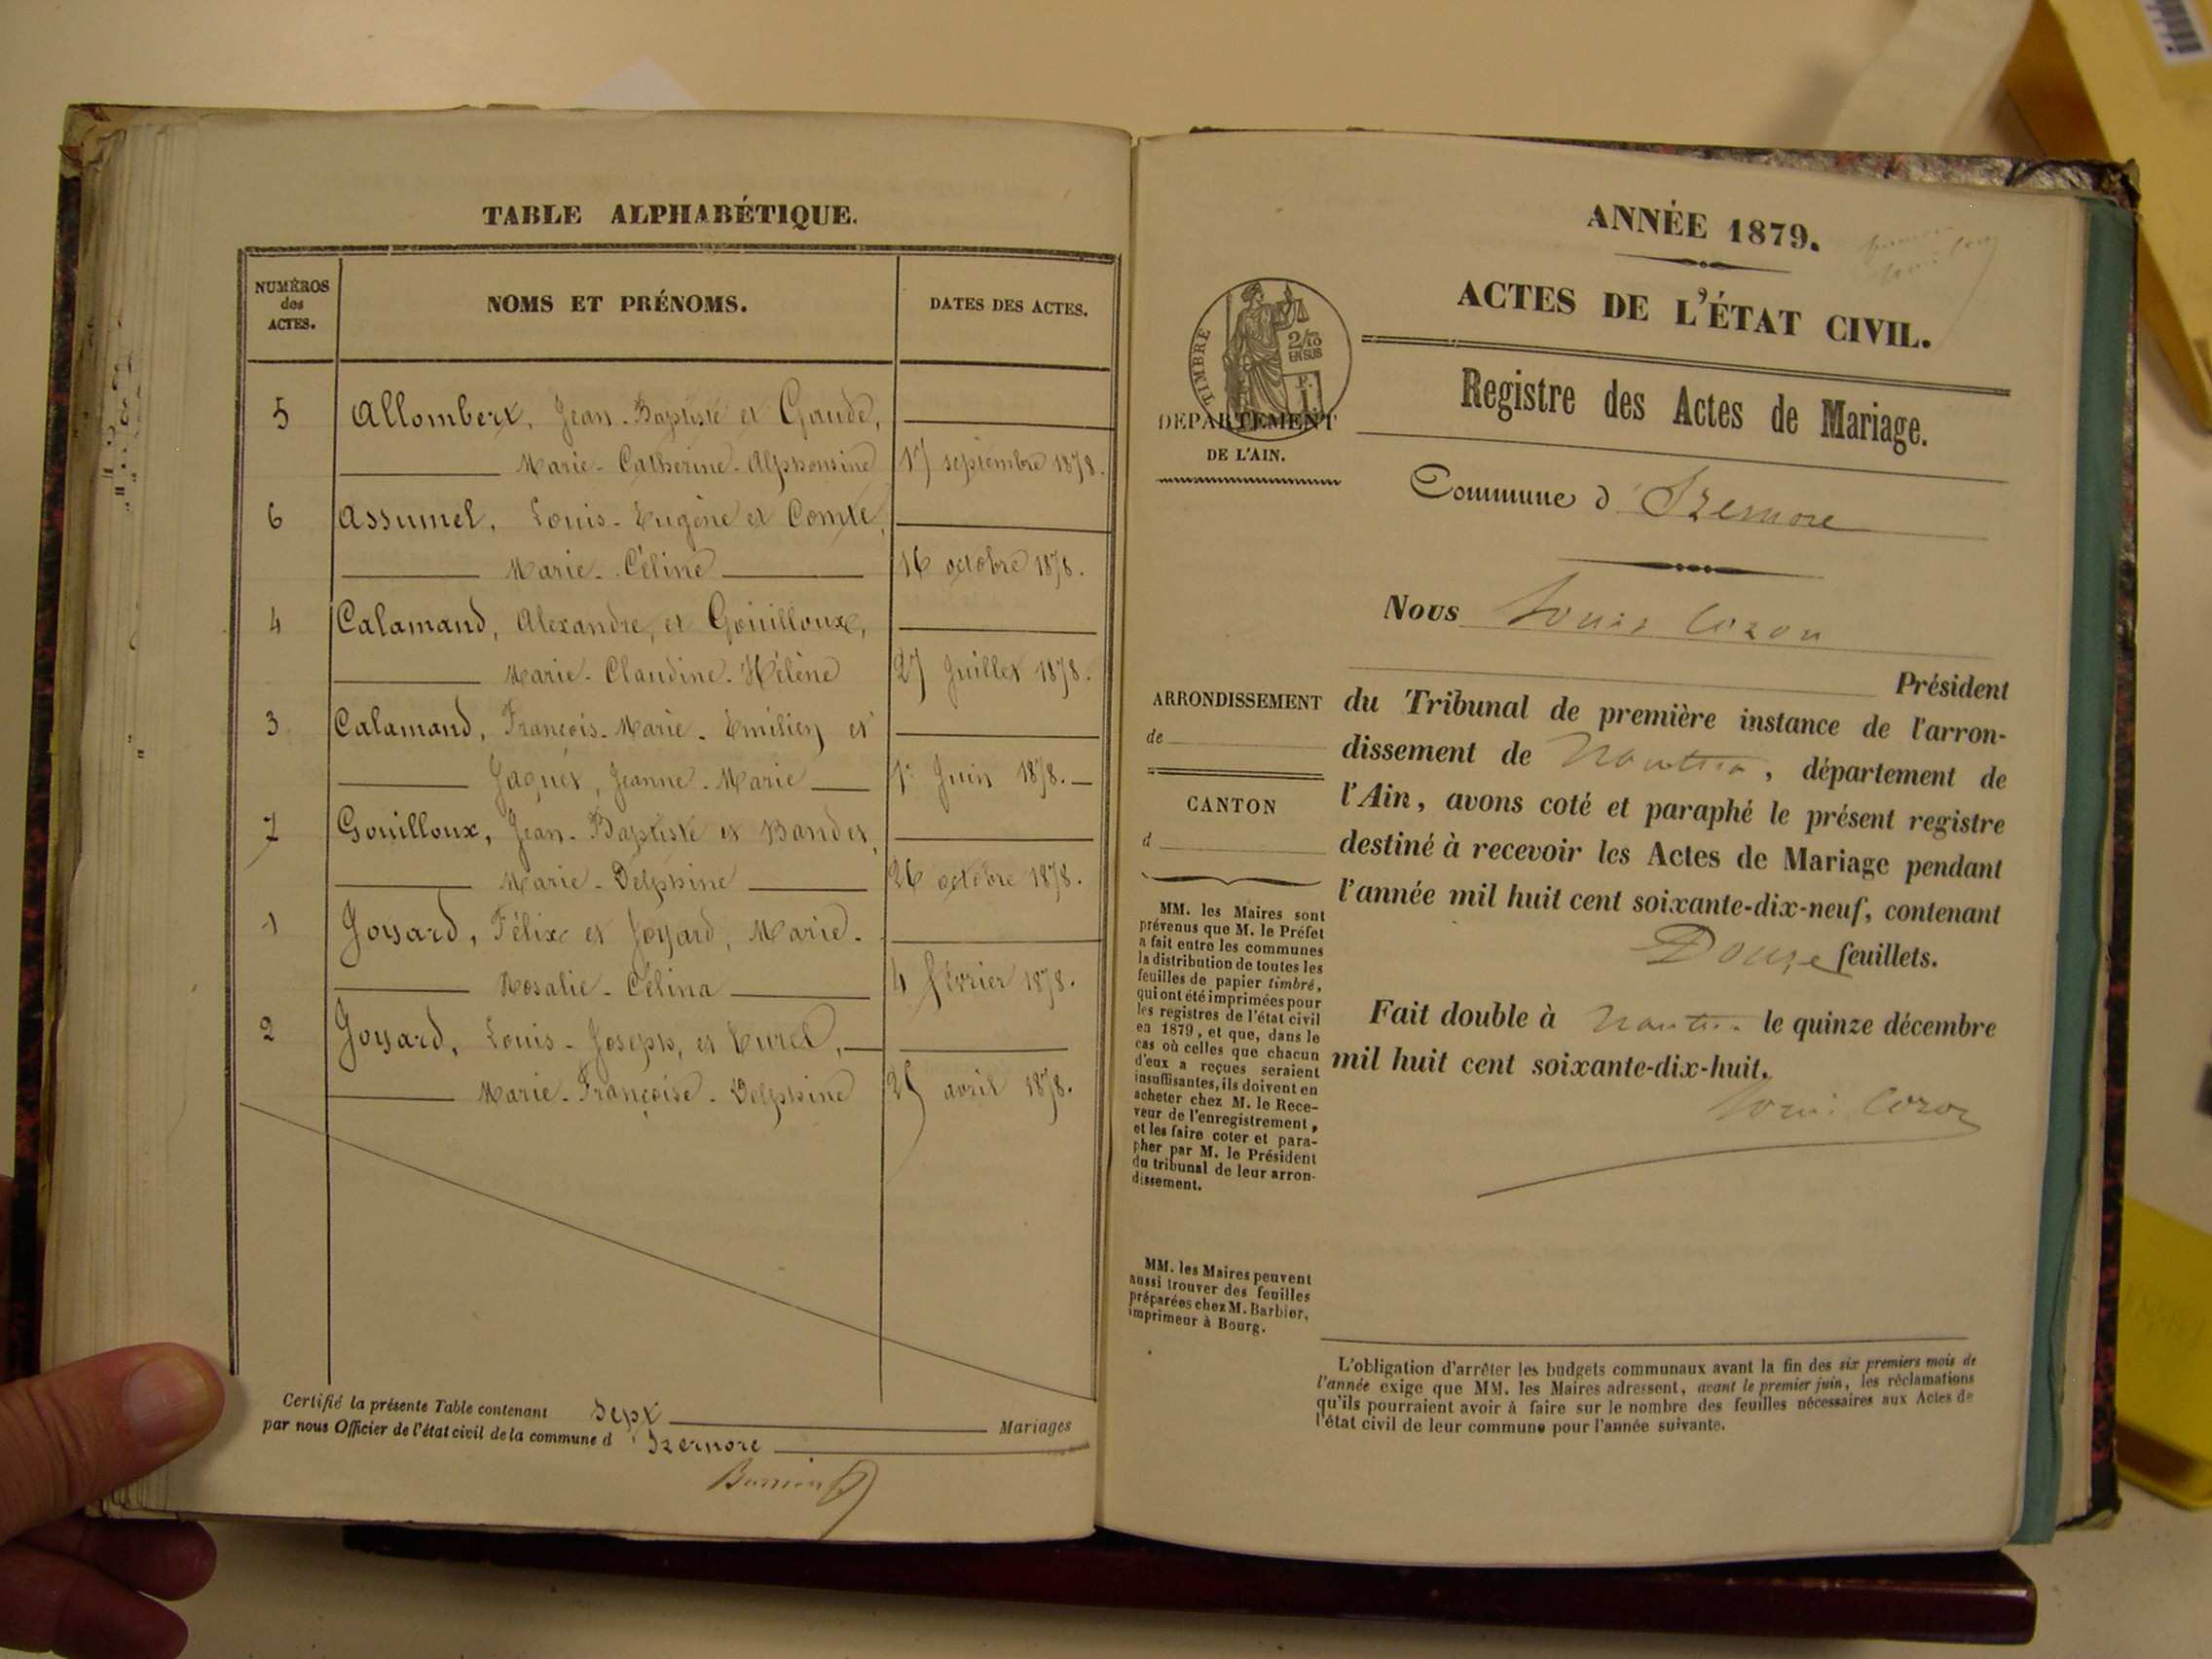 TABLE ALPHABÉTIQUE.
NUMÉROS
des
ACTES.
NOMS ET PRÉNOMS.
DATES DES ACTES.
5 Allombert, Jean-Baptiste et Gaude,
Marie-Catherine-Alphonsine 17 septembre 1878.
6 Assumel, Louis-Eugène et Comte,
Marie-Céline 16 octobre 1878.
4 Calamand, Alexandre, et Gouilloux,
Marie-Claudine-Hélène 27 Juillet 1878.
3 Calamand, François-Marie-Emilien et
Jaquet, Jeanne-Marie 1er Juin 1878.
7 Gouilloux, Jean-Baptiste et Bandet,
Marie-Delphine 26 octobre 1878.
1 Joyard, Félix et Joyard, Marie-
Rosalie-Célina 4 février 1878.
2 Joyard, Louis-Joseph, et
Marie-Françoise-Delphine 25 avril 1878.
Certifié la présente Table contenant sept Mariages
par nous Officier de l'état civil de la commune d'Izernore
ANNÉE 1879.
ACTES DE L'ÉTAT CIVIL.
TIMBRE
2/10
EN SUS
DEPARTEMENT
DE L'AIN.
Registre des Actes de Mariage.
Commune d'Izernore
Nous Louis Cozon
Président
ARRONDISSEMENT
de
CANTON
d
du Tribunal de première instance de l'arron-
dissement de Nantua, département de
l'Ain, avons coté et paraphé le présent registre
destiné à recevoir les Actes de Mariage pendant
l'année mil huit cent soixante-dix-neuf, contenant
Douze feuillets.
Fait double à Nantua le quinze décembre
mil huit cent soixante-dix-huit.
Louis Cozon
MM. les Maires sont
prévenus que M. le Préfet
a fait entre les communes
la distribution de toutes les
feuilles de papier timbré,
qui ont été imprimées pour
les registres de l'état civil
en 1879, et que, dans le
cas où celles que chacun
d'eux a reçues seraient
insuffisantes, ils doivent en
acheter chez M. le Rece-
veur de l'enregistrement,
et les faire coter et para-
pher par M. le Président
du tribunal de leur arron-
dissement.
MM. les Maires peuvent
aussi trouver des feuilles
préparées chez M. Barbier,
imprimeur à Bourg.
L'obligation d'arrêter les budgets communaux avant la fin des six premiers mois de
l'année exige que MM. les Maires adressent, avant le premier juin, les réclamations
qu'ils pourraient avoir à faire sur le nombre des feuilles nécessaires aux Actes de
l'état civil de leur commune pour l'année suivante.